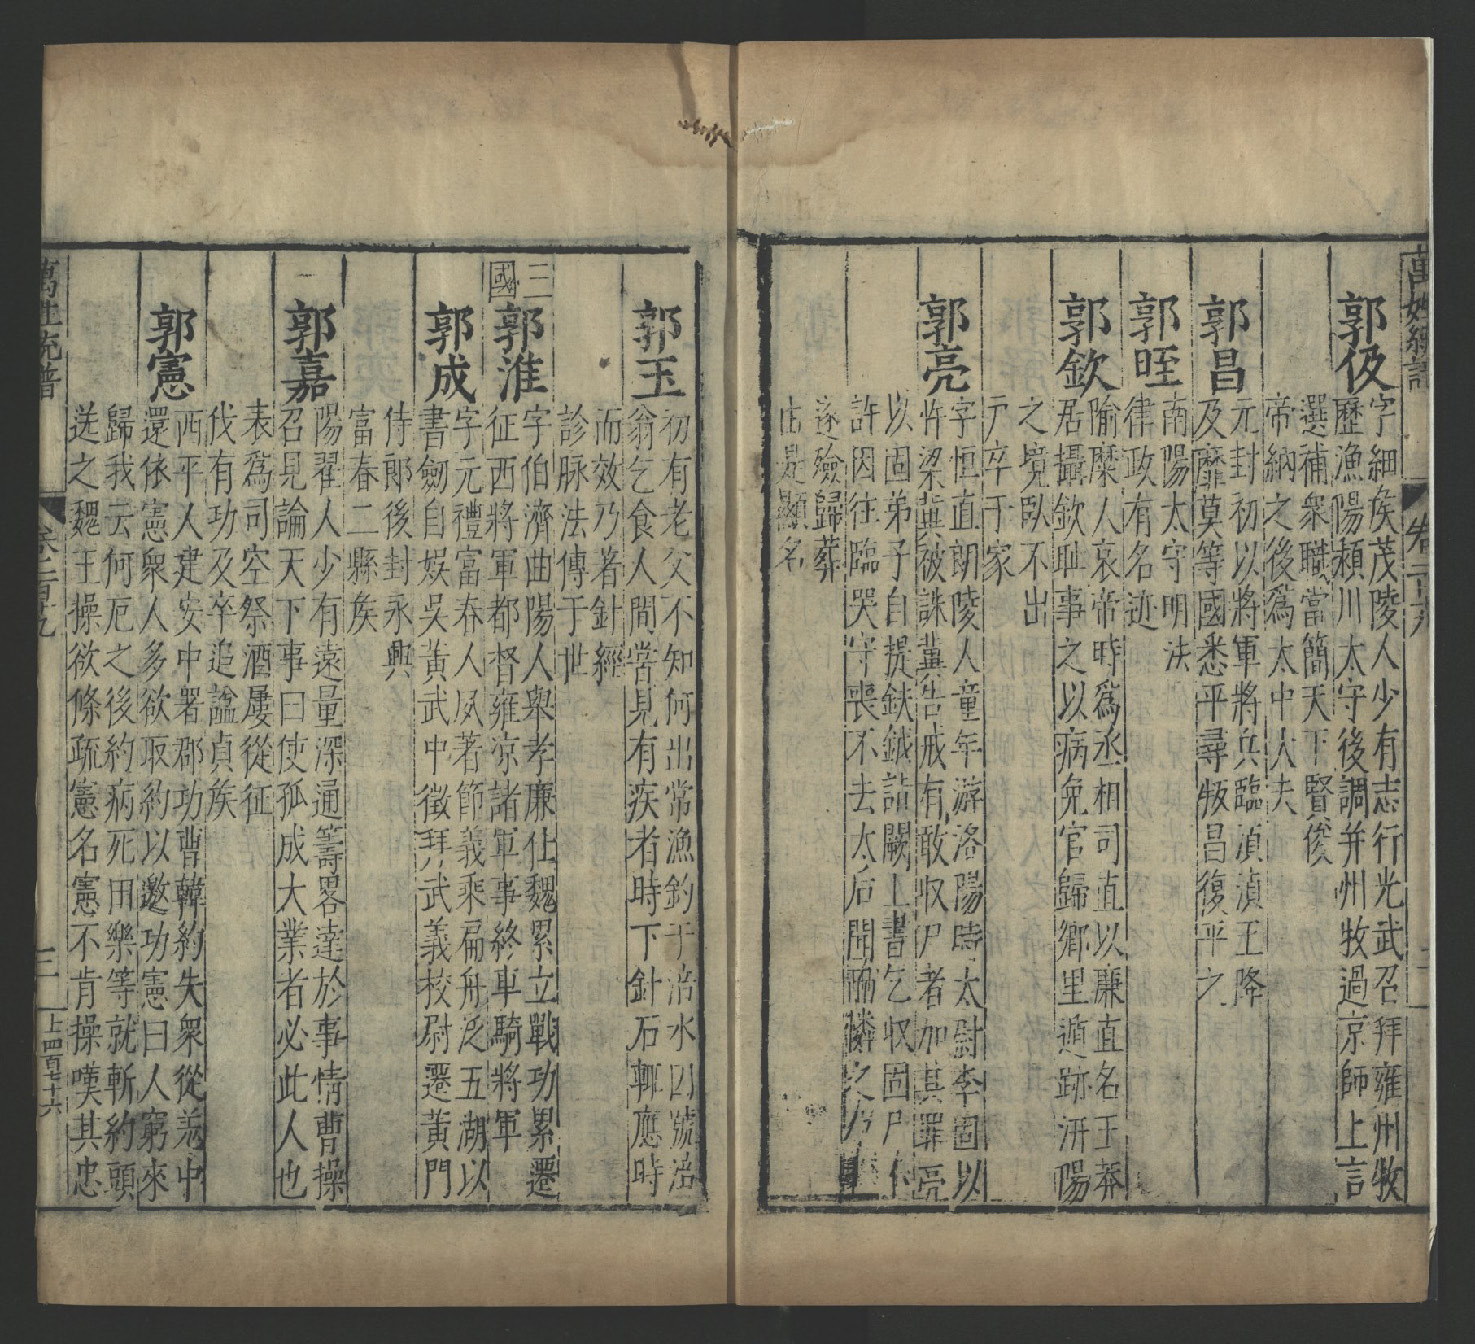 郭伋
字細侯茂陵人少有志行光武召拜雍州牧
歷漁陽潁川太守後調并州牧過京師上言
選補衆職當簡天下賢俊
帝納之後爲太中大夫
郭昌
元封初以將軍將兵臨滇滇王降
及靡莫等國悉平尋叛昌復平之
郭晊
南陽太守明法
律政有名迹
郭欽
隃糜人哀帝時爲丞相司直以廉直名王莽
居攝欽耻事之以病免官歸鄉里遁跡汧陽
之境臥不出
戸卒于家
郭亮
字恒直朗陵人童年游洛陽時太尉李固以
忤梁冀被誅冀告戒有敢收尸者加其罪亮
以固弟子自提鈇鉞詣闕上書乞收固尸不
許因往臨哭守喪不去太后聞而憐之乃
遂殮歸葬
由是顯名
郭玉
初有老父不知何出常漁釣于涪水因號涪
翁乞食人間嘗見有疾者時下針石輒應時
而效乃著針經
診脉法傳于世
三國
郭淮
字伯濟曲陽人舉孝廉仕魏累立戰功累遷
征西將軍都督雍凉諸軍事終車騎將軍
郭成
字元禮富春人夙著節義乘扁舟泛五湖以
書劍自娛吳黃武中徵拜武義校尉遷黃門
侍郎後封永興
富春二縣侯
郭嘉
陽翟人少有遠量深通籌畧達於事情曹操
召見論天下事曰使孤成大業者必此人也
表爲司空祭酒屢從征
伐有功及卒追謚貞侯
郭憲
西平人建安中署郡功曹韓約失衆從羌中
還依憲衆人多欲取約以邀功憲曰人窮來
歸我云何厄之後約病死田樂等就斬約頭
送之魏王操欲條疏憲名憲不肯操嘆其忠
萬姓統譜
卷一百十九
三
上四百七十六